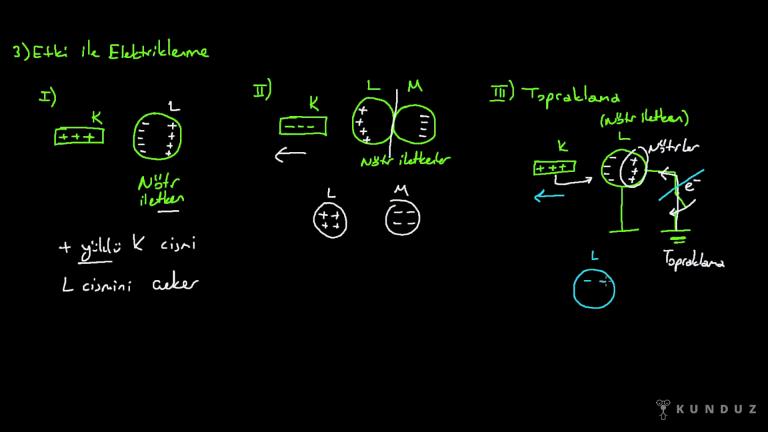 3) Etki ile Elektriklenme
I)
K
L
+ + +
Nötr
iletken
+ yüklü K cismi
L cismini çeker
II)
K
L M
- - -
Nötr iletkenler
L M
+ +
+ +
- -
- -
III) Topraklama
(Nötr iletken)
K
L
Nötrler
+ + +
e-
Topraklama
L
- -
KUNDUZ